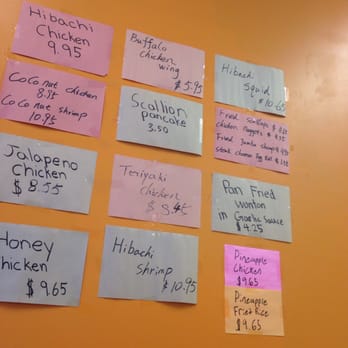 Hibachi
Chicken
9.95
Coconut chicken
8.55
Coconut shrimp
10.95
Jalapeno
Chicken
$ 8.55
Honey
Chicken
$ 9.65
Buffalo
chicken
wing
$ 5.95
Scallion
pancake
3.50
Teriyaki
chicken
Hibachi
shrimp
$ 10.95
Hibachi
Squid
$ 10.65
Fried
chicken nuggets
Fried Jumbo shrimp
steak cheese Egg Roll
Pan Fried
wonton
in Garlic Sauce
$ 4.25
Pineapple
Chicken
$9.65
Pineapple
Fried Rice
$9.65